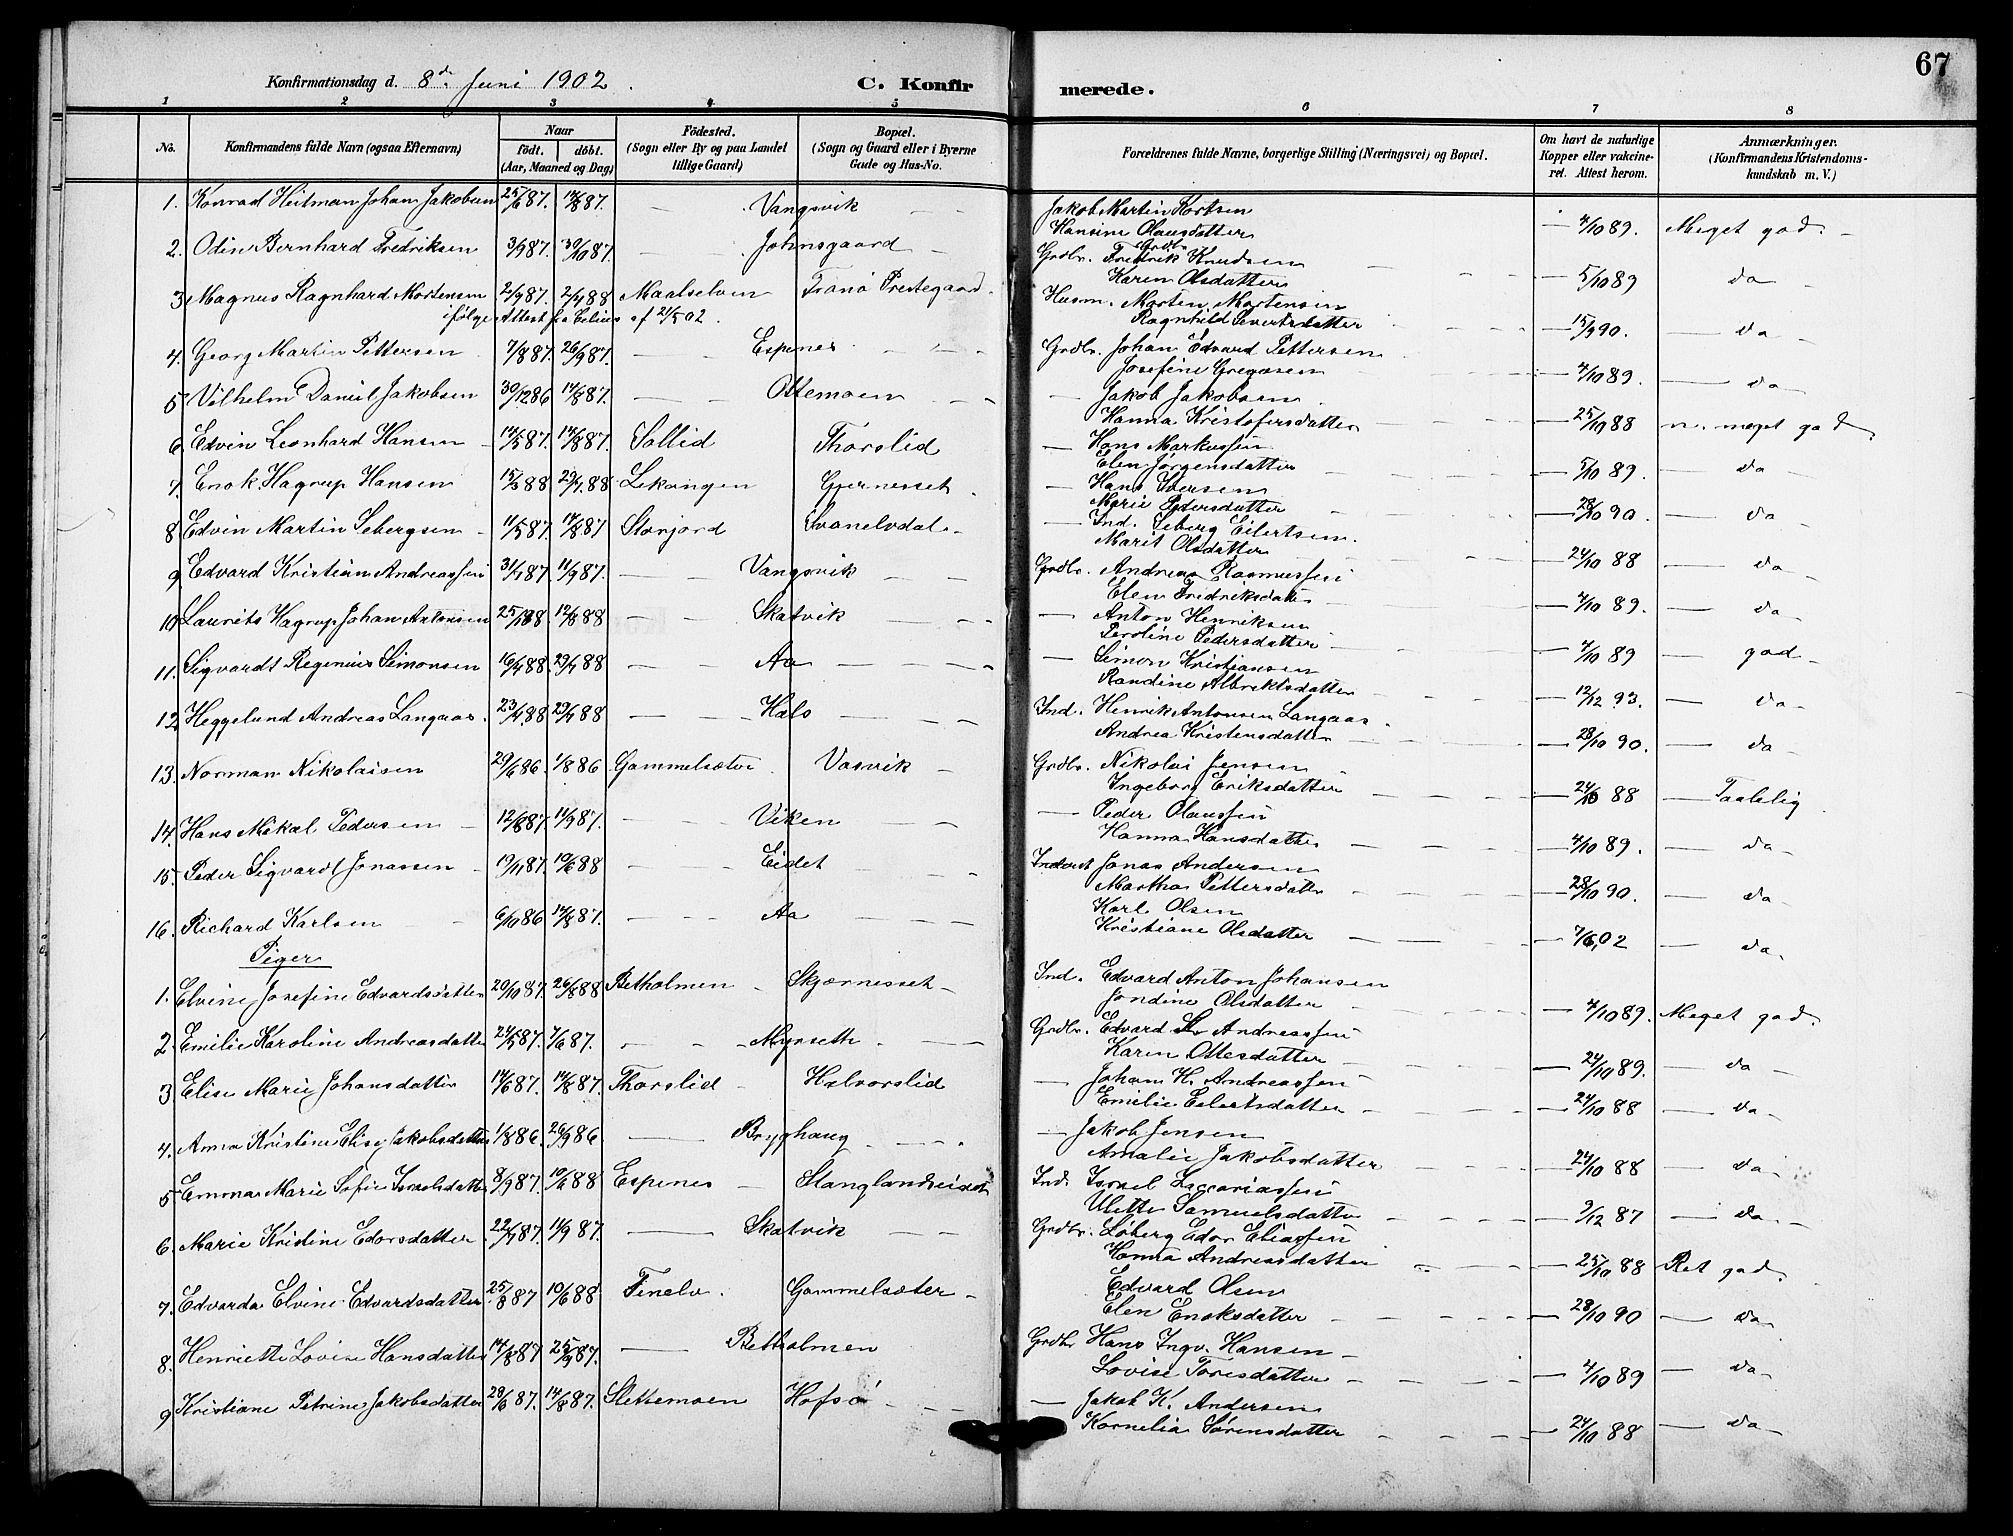 67
Konfirmationsdag d. 8de Juni 1902. C. Konfirmerede.
1 2 3 4 5 6 7 8
No. Konfirmandens fulde Navn (ogsaa Efternavn) Naar født. døbt. (Aar, Maaned og Dag) Fødested. (Sogn eller By og paa Landet tillige Gaard) Bopæl. (Sogn og Gaard eller i Byerne Gade og Hus-No. Forældrenes fulde Navne, borgerlige Stilling (Næringsvei) og Bopæl. Om havt de naturlige Kopper eller vakcineret. Attest herom. Anmærkninger. (Konfirmandens Kristendomskundskab m. V.)
1. Konrad Hitman Johan Jakobsen 25/6 87. 14/8 87. — Vangsvik — Jakob Martin Kortsen
Hansine Olausdatter — 4/10 89. Meget god. —
2. Odin Bernhard Fredriksen 3/9 87. 30/10 87. — Johnsgaard — Grdbr. Fredrik Knudsen
Karen Olsdatter — 5/10 89 — da —
3 Magnus Ragnhard Mortensen 2/9 87. 2/4 88 Maalselven Tranø Prestegaard. Husm. Morten Mortensen
ifølge Attest fra af 21/5 02. Ragnhild Sivertsdatter — 15/9 90. — da —
4. Georg Martin Pettersen 7/8 87. 26/9 87. — Espenes — Grdbr. Johan Edvard Pettersen
Josefine Gregosen — 4/10 89. — da —
5 Vilhelm Daniel Jakobsen 30/12 86 14/8 87. — Ottemoen — — Jakob Jakobsen
Hanna Kristofersdatter — 25/10 88 n. meget god
6 Edvin Leonhard Hansen 14/5 87. 14/8 87. Sollid Thorslid — Hans Markussen
Elen Jørgensdatter — 5/10 89. — da —
7 Enok Hagrup Hansen 15/3 88 29/4 88 Lekangen Gjernesset. — Hans Iversen
Marie Pedersdatter — 28/10 90. — da —
8 Edvin Martin Sebergsen 11/5 87. 14/8 87 Storjord Svanelvdal. — Ind. Seberg Eilertsen.
Marit Olsdatter — 24/10 88 — da —
9 Edvard Kristian Andreassen 31/7 87. 11/9 87. — Vangsvik — Grdbr. Andreas Rasmussen
Elen Fredriksdatter — 4/10 89. — da —
10 Laurits Hagrup Johan Antonsen 25/1 88. 12/8 88 — Skatvik — Anton Henriksen
Peroline Pedersdatter — 4/10 89 — god —
11. Sigvardt Regenius Simonsen 16/4 88. 29/4 88 — Aa — Simon Kristiansen
Randine Albrektsdatter — 12/12 93. — da —
12 Heggelund Andreas Langaas. 23/4 88 29/4 88 — Kalo — Ind. Henrik Antonsen Langaas.
Andrea Kristensdatter — 28/10 90. — da —
13. Norman Nikolaisen 29/6 86. 1/8 86 Gammelsæter. Vasvik — Grdbr. Nikolai Jensen
Ingeborg Eriksdatter — 24/10 88 — Taalelig
14. Hans Mikal Pedersen 12/8 87. 11/9 87. — Viken — Peder Olaussen
Hanna Hansdatter — 4/10 89. — da —
15. Peder Sigvardt Jonassen 19/11 87. 10/6 88 — Eidet — Inderst Jonas Andersen
Martha Pettersdatter — 28/10 90. — da —
16. Richard Karlsen 6/10 86 14/8 87. — Aa — Karl Olsen
Kristiane Olsdatter — 7/6 02 — da
Piger
1. Elvine Josefine Edvardsdatter 20/10 87. 26/8 88 Betholmen — Skjærnesset — Ind. Edvard Anton Johansen
Jondine Olsdatter — 4/10 89. Meget god.
2. Emilie Karoline Andreasdatter 24/5 87. 7/6 87. — Myrseth. — Grdbr. Edvard Andreassen
Karen Ottesdatter — 24/10 89. — da —
3. Elise Marie Johansdatter 14/6 87. 14/8 87. Thorslid — Halvorslid — Johan H. Andreassen
Emilie Eilertsdatter — 24/10 88 — da —
4. Anna Kristine Elise Jakobsdatter 1/8 86. 26/9 86 — Brygghaug — Jakob Jensen
Amalie Jakobsdatter — 24/10 88 — da —
5 Emma Marie Sofie Israelsdatter 8/9 87. 10/6 88 Espenes — Stanglandseidet Ind. Israel Zaccariassen
Ulette Samuelsdatter — 9/12 87 — da —
6. Marie Kristine Edorsdatter 22/7 87. 11/9 87. — Skatvik — Grdbr. Søberg Edor Eliassen
Hanna Andreasdatter — 25/10 88 Ret god.
7. Edvarda Elvine Edvardsdatter 25/8 87 10/6 88 Finelv. Gammelsæter — Edvard Olsen
Elen Enoksdatter — 28/10 90 — da
8. Henriette Lovise Hansdatter 14/8 87 25/9 87. — Betholmen Grdbr Hans Ingv. Hansen —
Lovise Toresdatter — 4/10 89 — da —
9 Kristiane Petrine Jakobsdatter 28/6 87. 14/8 87. Slettemoen Hofsø — Jakob K. Andersen
Kornelia Sørensdatter — 24/10 88 — da —